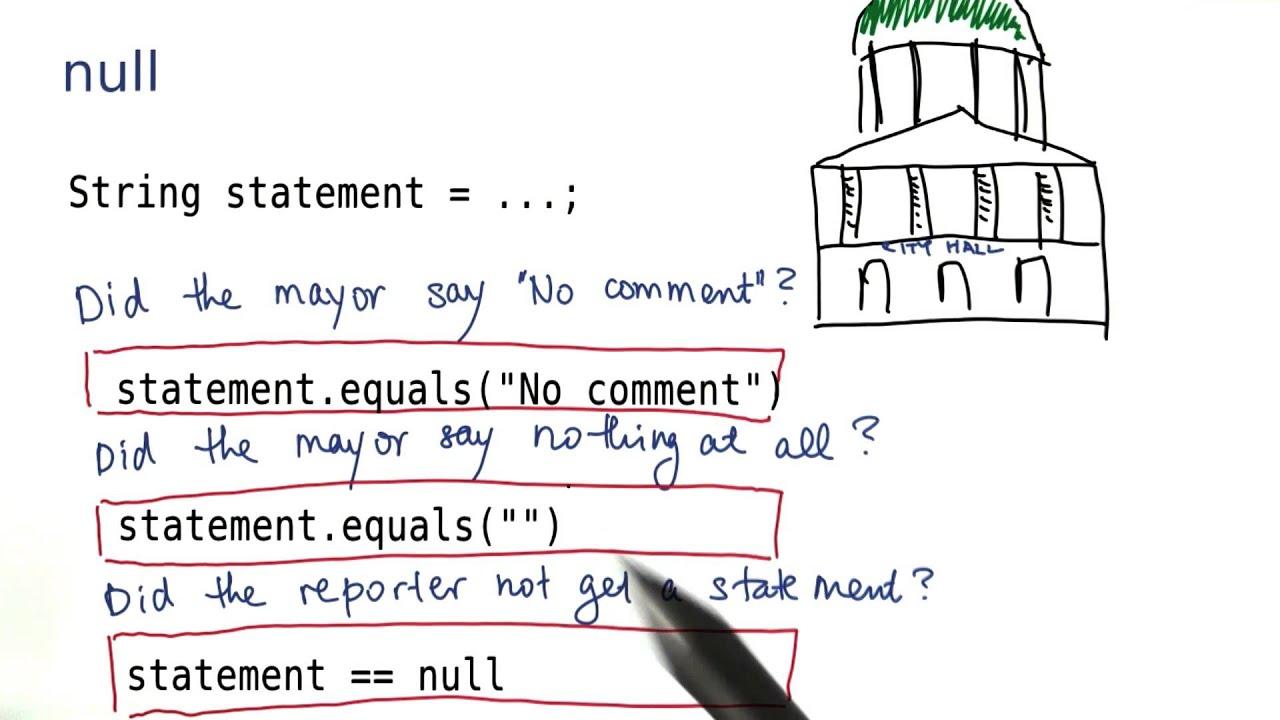 null
String statement = ...;
CITY HALL
Did the mayor say "No comment"?
statement.equals("No comment")
Did the mayor say nothing at all?
statement.equals("")
Did the reporter not get a statement?
statement == null